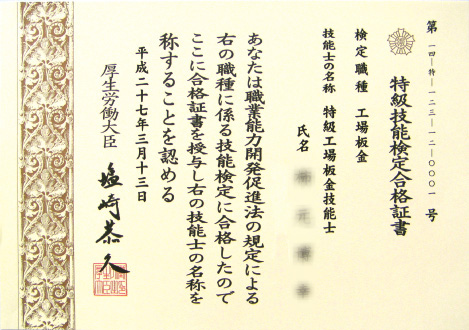 第一四-特-一二三-一二-〇〇〇一号
特級技能検定合格証書
検定職種 工場板金
技能士の名称 特級工場板金技能士
氏名
あなたは職業能力開発促進法の規定による
右の職種に係る技能検定に合格したので
ここに合格証書を授与し右の技能士の名称を
称することを認める
平成二十七年三月十三日
厚生労働大臣 塩崎恭久